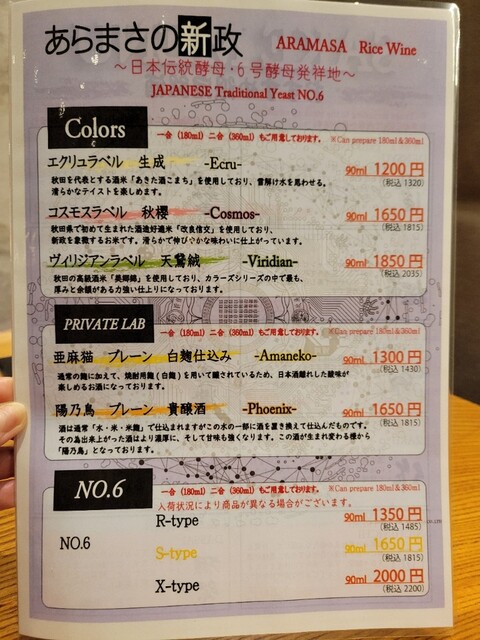 あらまさの新政 ARAMASA Rice Wine
～日本伝統酵母・6号酵母発祥地～
JAPANESE Traditional Yeast NO.6
Colors 一合 (180ml) 二合 (360ml) もご用意しております。 ※Can prepare 180ml&360ml
エクリュラベル 生成 -Ecru- 90ml 1200円
(税込 1320)
秋田を代表とする酒米「あきた酒こまち」を使用しており、雪解け水を思わせる、
清らかなテイストを楽しめます。
コスモスラベル 秋櫻 -Cosmos- 90ml 1650円
(税込 1815)
秋田県で初めて生まれた酒造好適米「改良信交」を使用しており、
新政を象徴するお米です。滑らかで伸びやかな味わいに仕上がっています。
ヴィリジアンラベル 天鵞絨 -Viridian- 90ml 1850円
(税込 2035)
秋田の高級酒米「美郷錦」を使用しており、カラーズシリーズの中で最も、
厚みと余韻がある力強い仕上りになっております。
PRIVATE LAB 一合 (180ml) 二合 (360ml) もご用意しております。 ※Can prepare 180ml&360ml
亜麻猫 プレーン 白麹仕込み -Amaneko- 90ml 1300円
(税込 1430)
通常の麹に加えて、焼酎用麹(白麹)を用いて醸されているため、日本酒離れした酸味が
楽しめるお酒になっております。
陽乃鳥 プレーン 貴醸酒 -Phoenix- 90ml 1650円
(税込 1815)
酒は通常「水・米・米麹」で仕込まれますがこの水の一部に酒を置き換えて仕込んだものです。
その為出来上がった酒はより濃厚に、そして甘味も強くなります。この酒が生まれ変わる様から
「陽乃鳥」となっております。
NO.6 一合 (180ml) 二合 (360ml) もご用意しております。 ※Can prepare 180ml&360ml
入荷状況により商品が異なる場合がございます。
R-type 90ml 1350円
(税込 1485)
NO.6 S-type 90ml 1650円
(税込 1815)
X-type 90ml 2000円
(税込 2200)